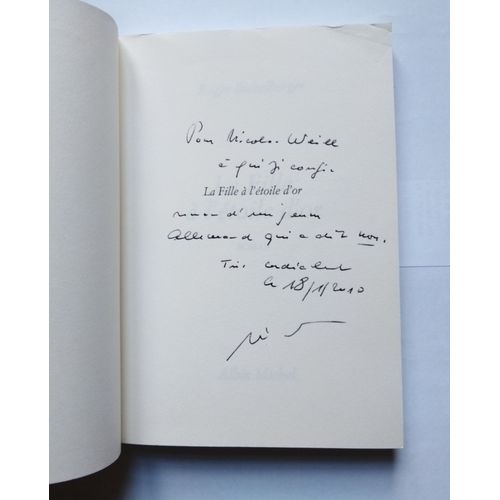 Pour Nicolas Weill
à qui je confie
La Fille à l'étoile d'or
roman d'un jeune
Allemand qui a dit non.
Très cordialement
le 18/1/2010
Albin Michel